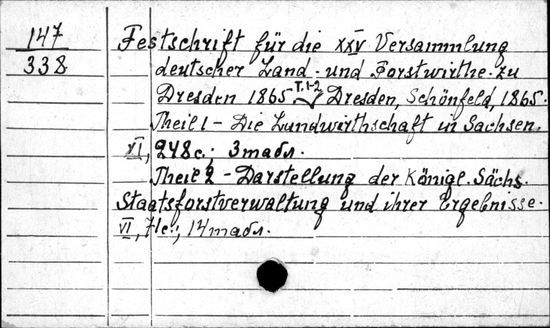 147
338
Festschrift für die XXV Versammlung
deutscher Land- und Forstwirthe zu
Dresden 1865 T.1-2 Dresden, Schönfeld, 1865.
Theil 1 - Die Landwirthschaft in Sachsen.
VI, 248c.; 3 табл.
Theil 2 - Darstellung der Königl. Sächs.
Staatsforstverwaltung und ihrer Ergebnisse.
VI, 71c.; 14 табл.